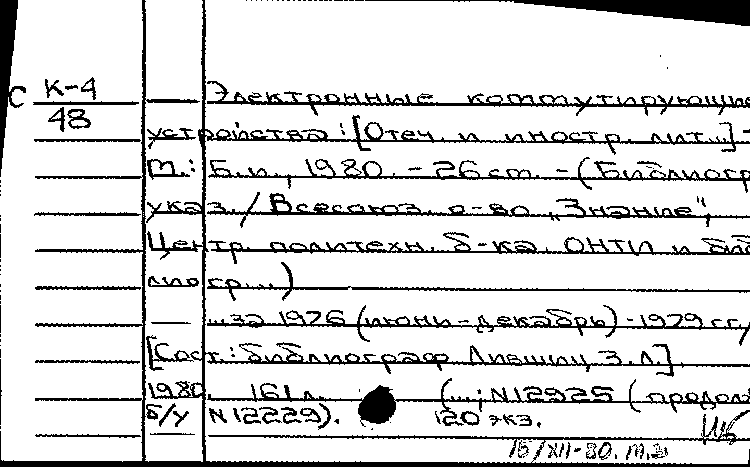 С К-4
48
Электронные коммутирующие
устройства: [Отеч. и иностр. лит...] -
М.: Б.и., 1980. - 26 ст. - (Библиогр
указ. / Всесоюз. о-во „Знание",
Центр. политехн. б-ка. ОНТИ и биб
лиогр...)
...за 1976 (июнь-декабрь) - 1979 гг./
[Сост.: библиограф Лившиц З.Л.]
1980. 161л. (...; N12925 ( продол
б/у N12229). 120 экз.
16/XII-80.